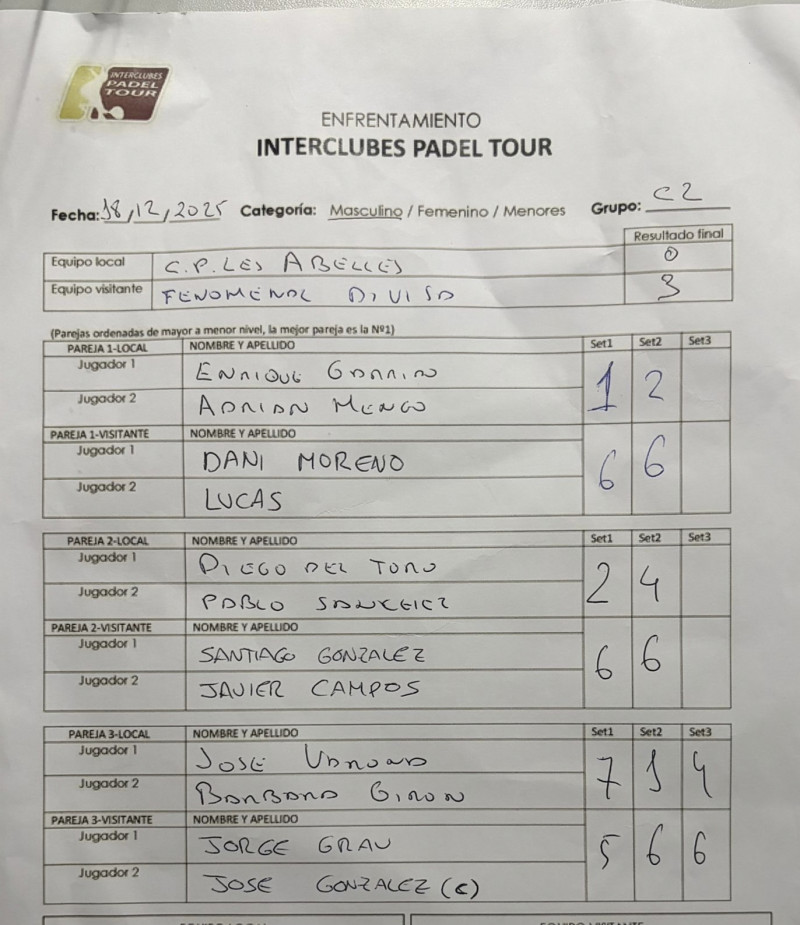 INTERCLUBES
PADEL
TOUR
ENFRENTAMIENTO
INTERCLUBES PADEL TOUR
Fecha: 18/12/2025 Categoría: Masculino / Femenino / Menores Grupo: C2
Resultado final
Equipo local C.P. LES ABELLES 0
Equipo visitante FENOMENAL DIVISO 3
(Parejas ordenadas de mayor a menor nivel, la mejor pareja es la Nº1)
PAREJA 1-LOCAL NOMBRE Y APELLIDO Set1 Set2 Set3
Jugador 1 ENRIQUE GARRIDO
Jugador 2 ADRIAN MENGO
1 2
PAREJA 1-VISITANTE NOMBRE Y APELLIDO
Jugador 1 DANI MORENO
Jugador 2 LUCAS
6 6
PAREJA 2-LOCAL NOMBRE Y APELLIDO Set1 Set2 Set3
Jugador 1 DIEGO DEL TORO
Jugador 2 PABLO SANCHEZ
2 4
PAREJA 2-VISITANTE NOMBRE Y APELLIDO
Jugador 1 SANTIAGO GONZALEZ
Jugador 2 JAVIER CAMPOS
6 6
PAREJA 3-LOCAL NOMBRE Y APELLIDO Set1 Set2 Set3
Jugador 1 JOSE
Jugador 2 BARBARA GIRON
7 1 4
PAREJA 3-VISITANTE NOMBRE Y APELLIDO
Jugador 1 JORGE GRAU
Jugador 2 JOSE GONZALEZ (C)
5 6 6